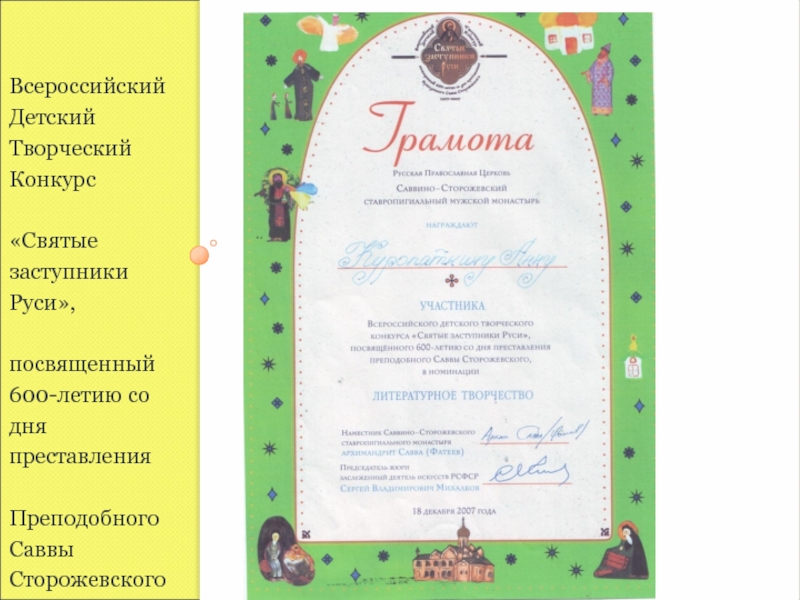 Всероссийский
Детский
Творческий
Конкурс
«Святые
заступники
Руси»,
посвященный
600-летию со
дня
преставления
Преподобного
Саввы
Сторожевского
Святые
заступники
Руси
Грамота
Русская Православная Церковь
Саввино-Сторожевский
ставропигиальный мужской монастырь
награждают
Куропаткину Анну
участника
Всероссийского детского творческого
конкурса «Святые заступники Руси»,
посвящённого 600-летию со дня преставления
преподобного Саввы Сторожевского,
в номинации
литературное творчество
Наместник Саввино-Сторожевского
ставропигиального монастыря
архимандрит Савва (Фатеев)
Председатель жюри
заслуженный деятель искусств РСФСР
Сергей Владимирович Михалков
18 декабря 2007 года